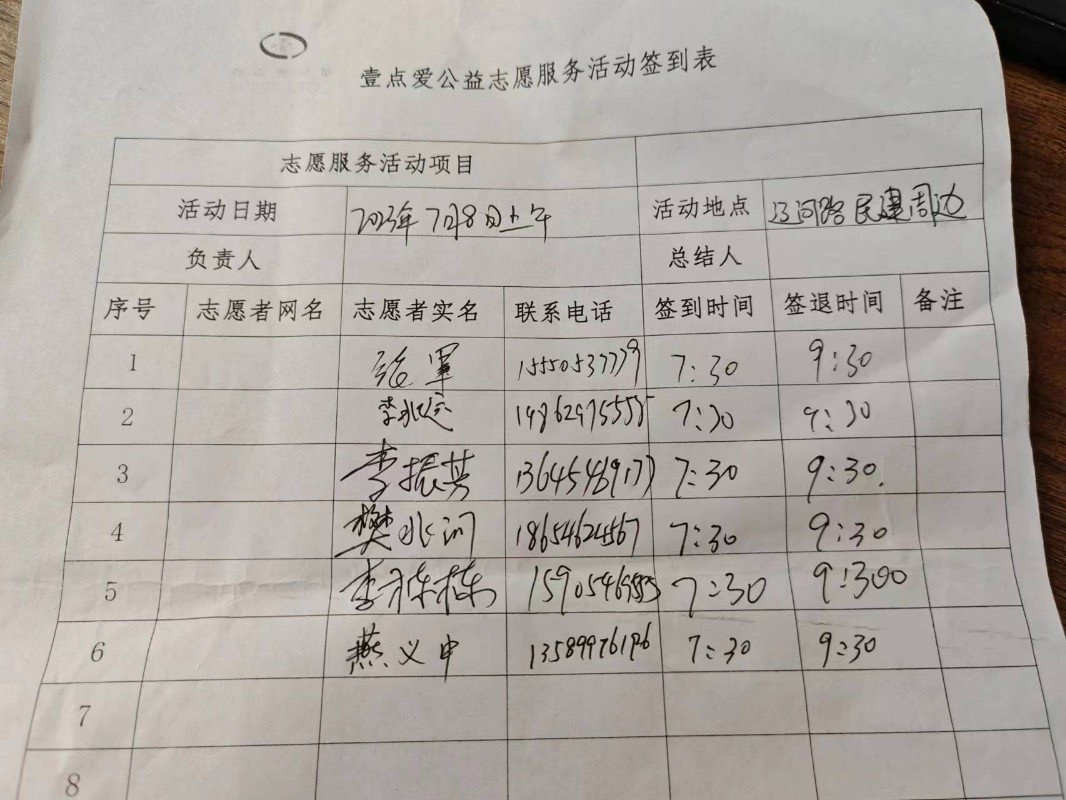 壹点爱公益志愿服务活动签到表
志愿服务活动项目
活动日期 2023年7月8日上午 活动地点 辽河路民建周边
负责人 总结人
序号 志愿者网名 志愿者实名 联系电话 签到时间 签退时间 备注
1 军 15550537779 7:30 9:30
2 李 7:30 9:30
3 李振英 7:30 9:30.
4 樊 18654624567 7:30 9:30
5 李栋栋 7:30 9:300
6 燕义中 7:30 9:30
7
8